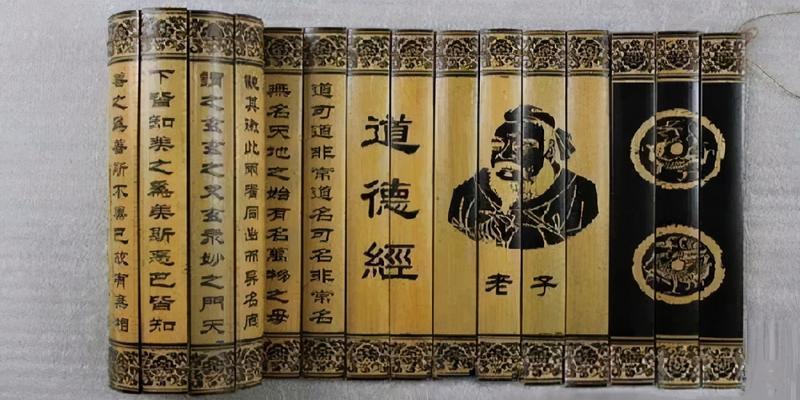 道德經
老子
道可道非常道名可名非常名
無名天地之始有名萬物之母
其徼此兩者同出而異名同
謂之玄玄之又玄眾妙之門天
下皆知美之為美斯惡已皆知
善之為善斯不善已故有無相